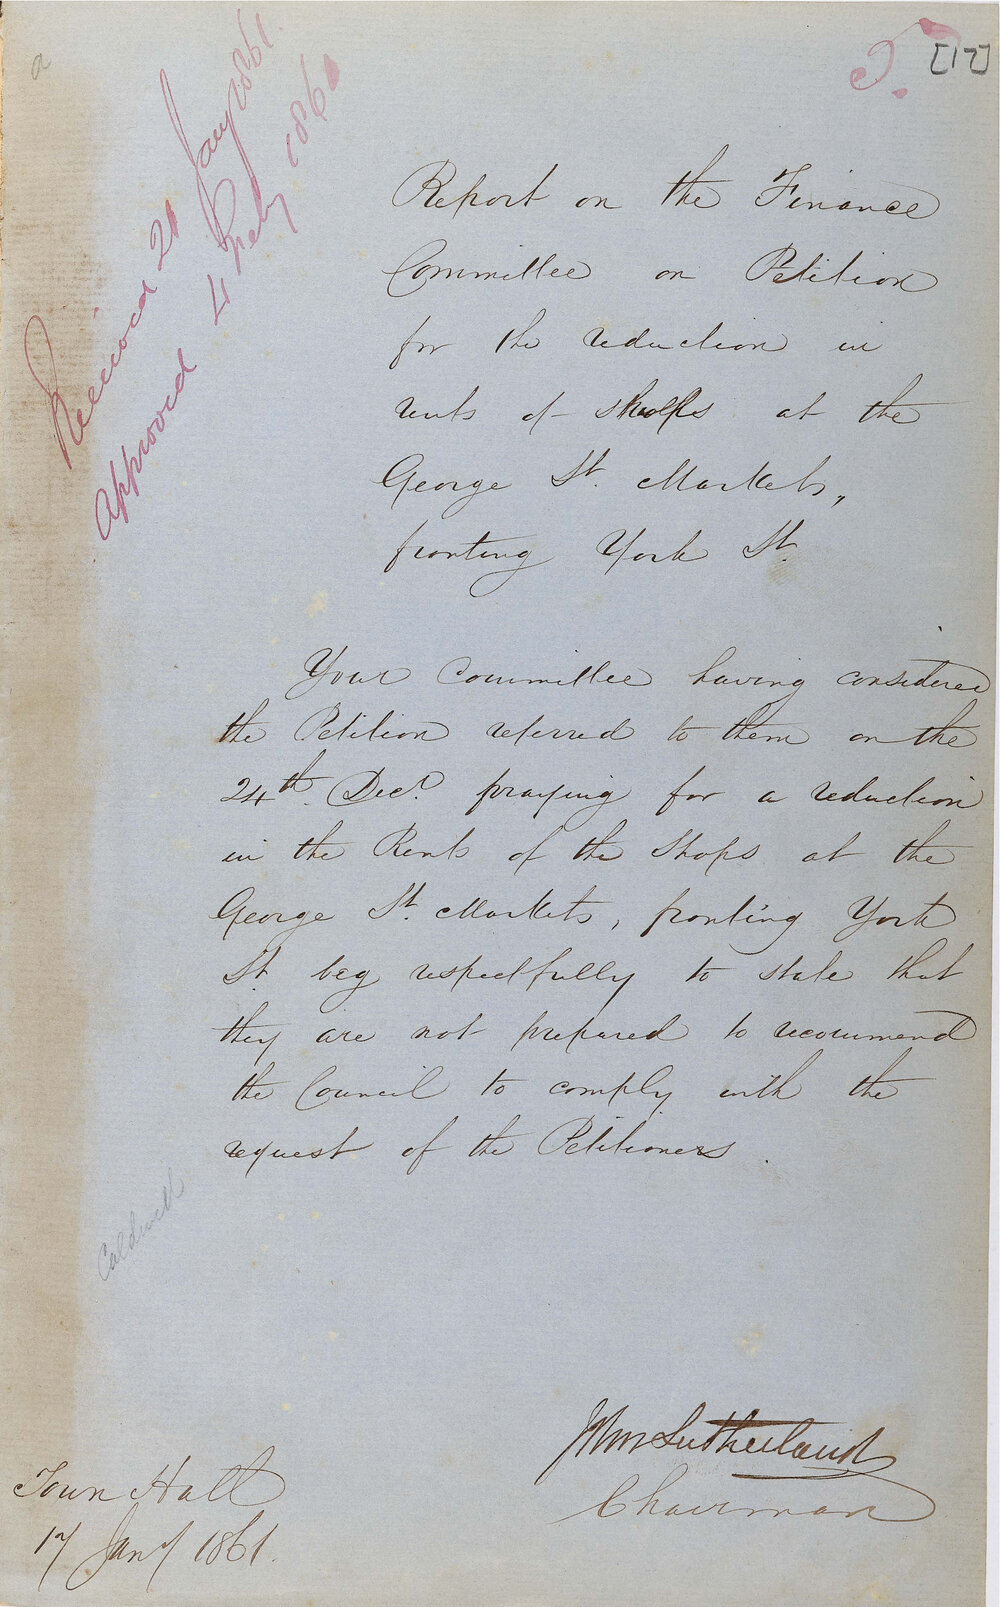 a
5.
[17]
Received 21 Jany 1861.
Approved 4 Feby 1861
Report on the Finance
Committee on Petition
for the reduction in
rents of shops at the
George St. Markets,
fronting York St.
Your Committee having considered
the Petition referred to them on the
24th. Decr. praying for a reduction
in the Rents of the Shops at the
George St. Markets, fronting York
St. beg respectfully to state that
they are not prepared to recommend
the Council to comply with the
request of the Petitioners.
Caldwell
John Sutherland
Chairman
Town Hall
17 Jany 1861.